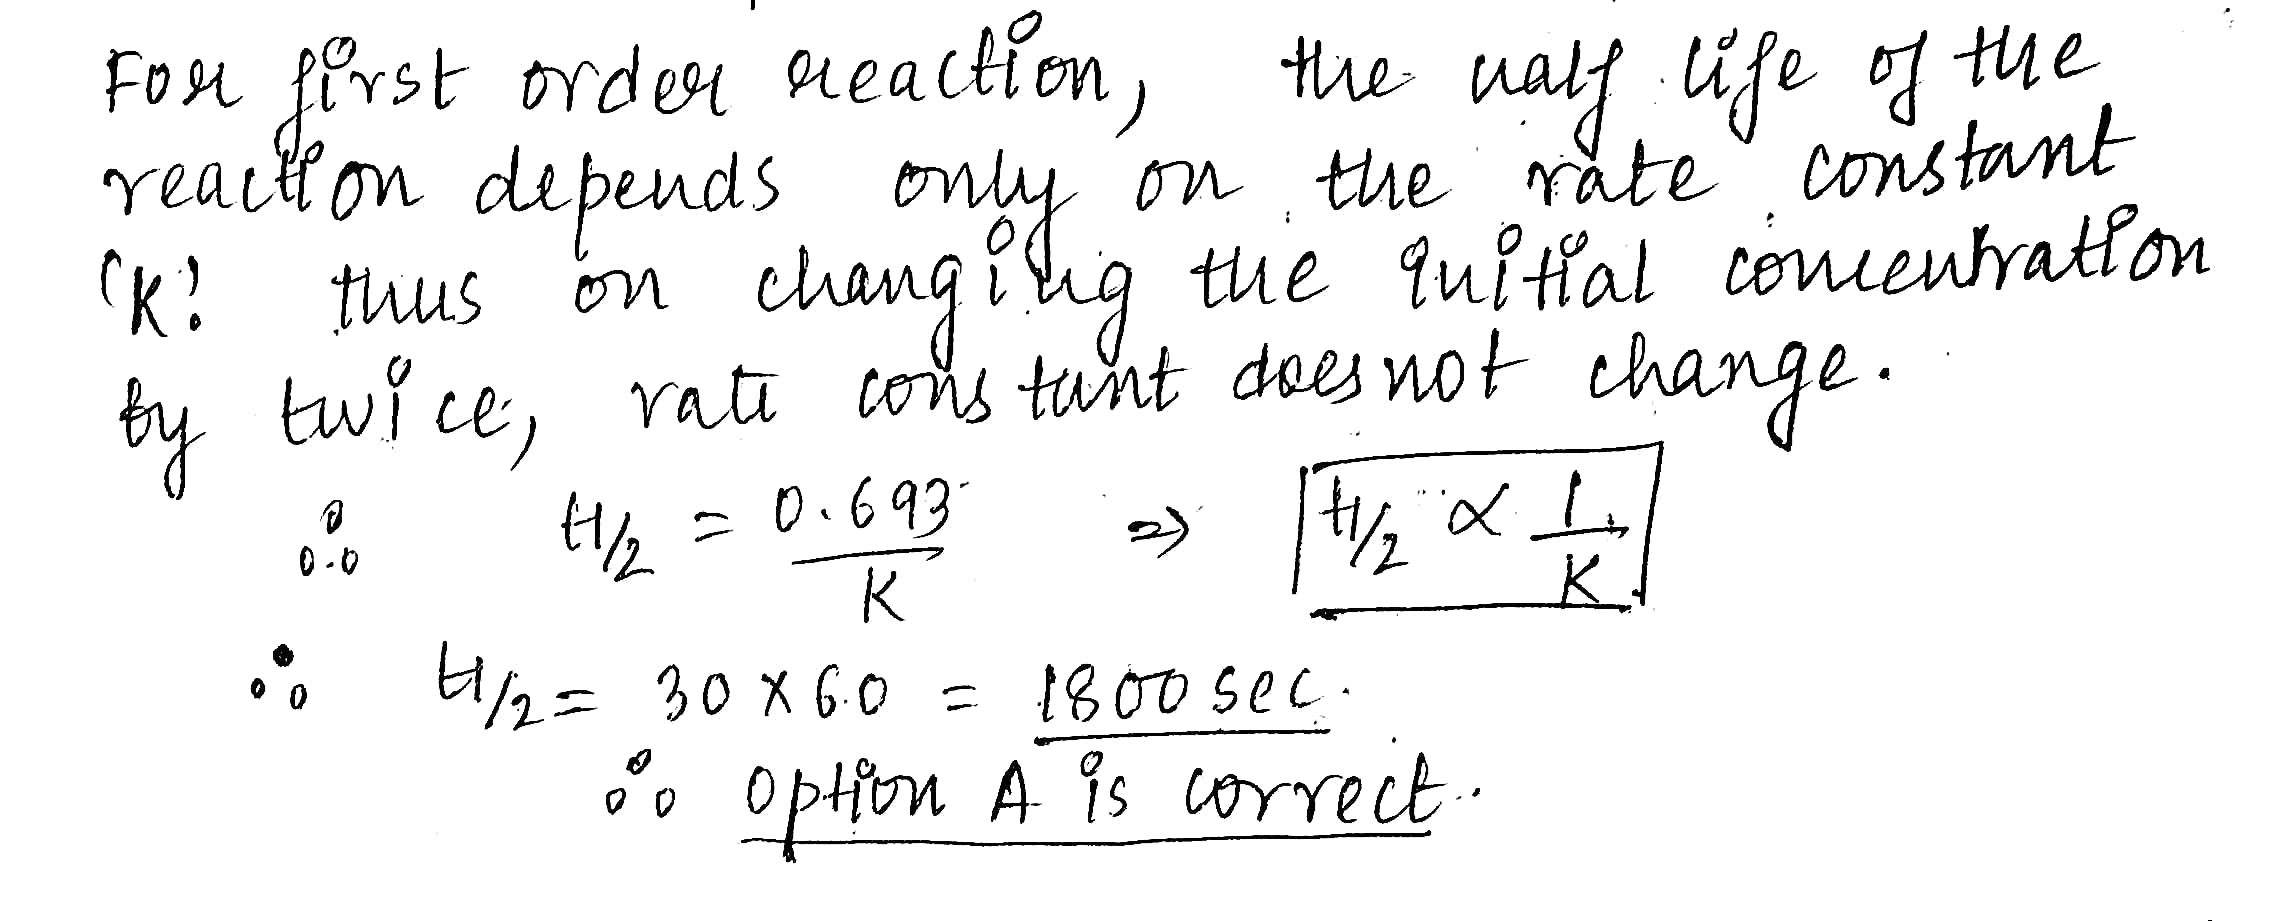 For first order reaction, the half life of the
reaction depends only on the rate constant
'K'. thus on changing the initial concentration
by twice, rate constant does not change.
∴ t1/2 = 0.693/K ⇒ t1/2 ∝ 1/K
∴ t1/2 = 30 x 60 = 1800 sec.
∴ option A is correct.